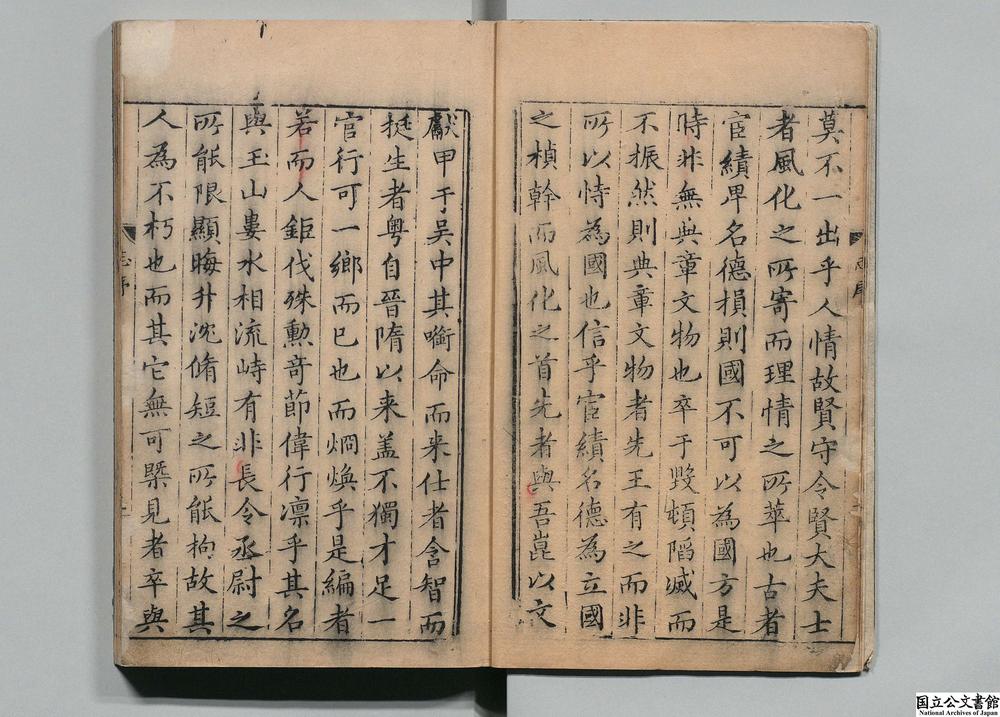 莫不一出乎人情故賢守令賢大夫士
者風化之所寄而理情之所萃也古者
宦績卑名德損則國不可以為國方是
時非無典章文物也卒于毀頓陷滅而
不振然則典章文物者先王有之而非
所以恃為國也信乎宦績名德為立國
之楨幹而風化之首先者與吾崑以文
獻甲于吳中其銜命而来仕者含智而
挺生者粤自晉隋以来盖不獨才足一
官行可一鄉而已也而烱焕乎是編者
若而人鉅伐殊勳竒莭偉行凛乎其名
與玉山婁水相流峙有非長令丞尉之
所能限顯晦升沈脩短之所能拘故其
人為不朽也而其它無可槩見者卒與
志序
国立公文書館
National Archives of Japan